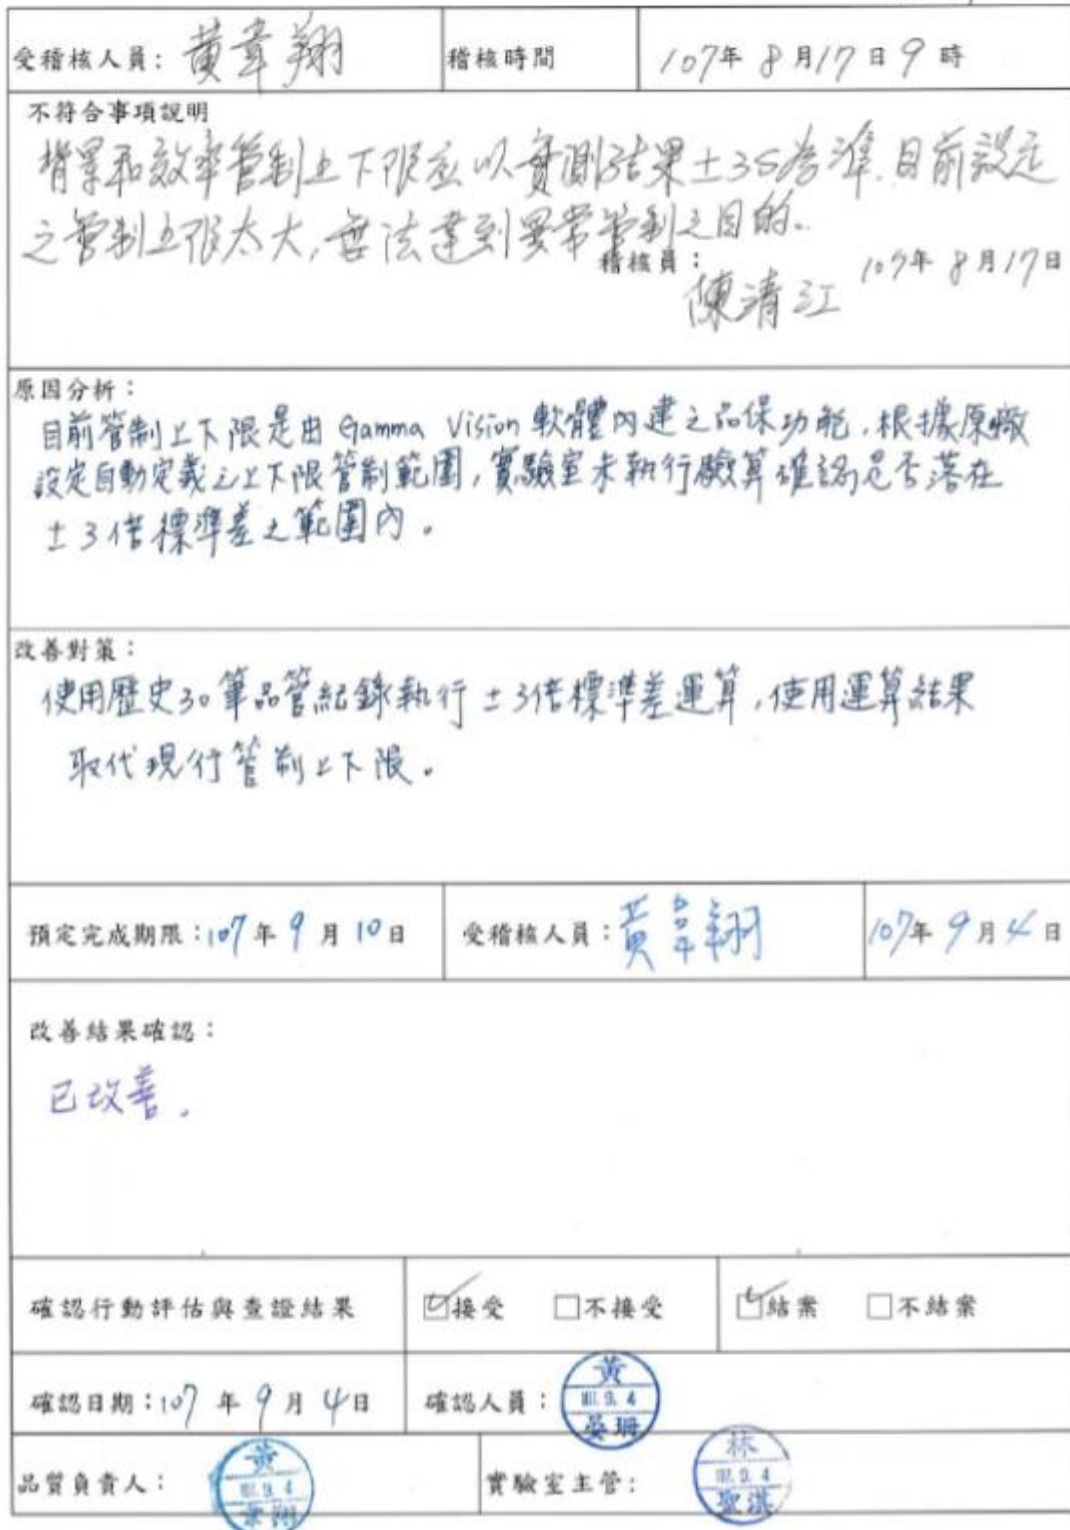 受稽核人員：黃韋翔 稽核時間 107年8月17日9時
不符合事項說明
背景和效率管制上下限應以實測結果±3S為準.目前設定
之管制上限太大,無法達到異常管制之目的。
稽核員： 107年8月17日
陳清江
原因分析：
目前管制上下限是由Gamma Vision軟體內建之品保功能,根據原廠
設定自動定義之上下限管制範圍,實驗室未執行驗算確認是否落在
±3倍標準差之範圍內。
改善對策：
使用歷史30筆品管紀錄執行±3倍標準差運算,使用運算結果
取代現行管制上下限。
預定完成期限：107年9月10日 受稽核人員：黃韋翔 107年9月4日
改善結果確認：
已改善。
確認行動評估與查證結果 ☑接受 □不接受 ☑結案 □不結案
確認日期：107年9月4日 確認人員：黃 107.9.4 晏珊
品質負責人：黃 107.9.4 韋翔 實驗室主管：林 107.9.4 聖淇